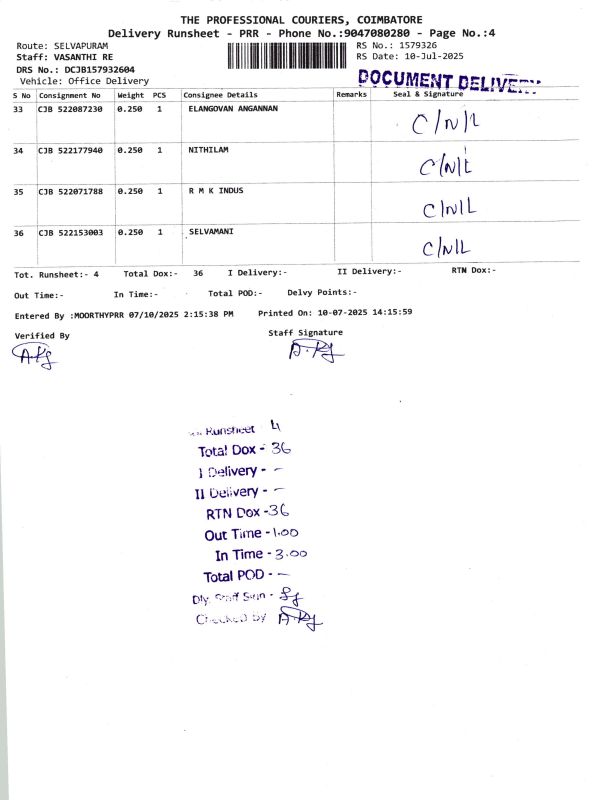 THE PROFESSIONAL COURIERS, COIMBATORE
Delivery Runsheet - PRR - Phone No.:9047080280 - Page No.:4
Route: SELVAPURAM
RS No.: 1579326
Staff: VASANTHI RE
RS Date: 10-Jul-2025
DRS No.: DCJB157932604
Vehicle: Office Delivery
DOCUMENT DELIVERY
S No Consignment No Weight PCS Consignee Details Remarks Seal & Signature
33 CJB 522087230 0.250 1 ELANGOVAN ANGANNAN C/N/L
34 CJB 522177940 0.250 1 NITHILAM C/N/L
35 CJB 522071788 0.250 1 R M K INDUS C/N/L
36 CJB 522153003 0.250 1 SELVAMANI C/N/L
Tot. Runsheet:- 4 Total Dox:- 36 I Delivery:- II Delivery:- RTN Dox:-
Out Time:- In Time:- Total POD:- Delvy Points:-
Entered By :MOORTHYPRR 07/10/2025 2:15:38 PM Printed On: 10-07-2025 14:15:59
Verified By Staff Signature
Runsheet 4
Total Dox - 36
I Delivery - -
II Delivery - -
RTN Dox -36
Out Time -1.00
In Time - 3.00
Total POD - -
Dly. Staff Sign -
Checked By